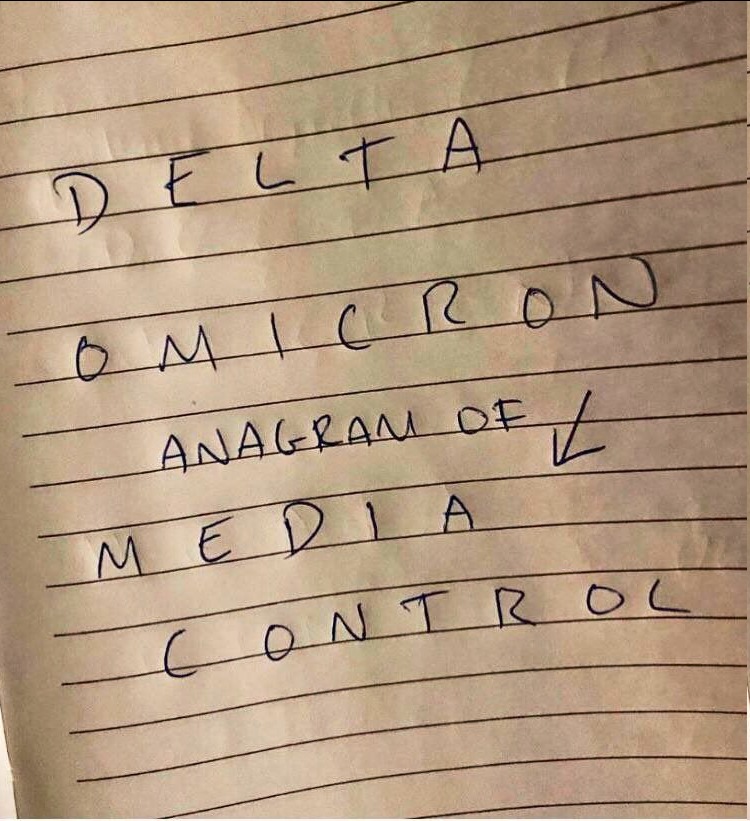 DELTA
OMICRON
ANAGRAM OF ↙
MEDIA
CONTROL